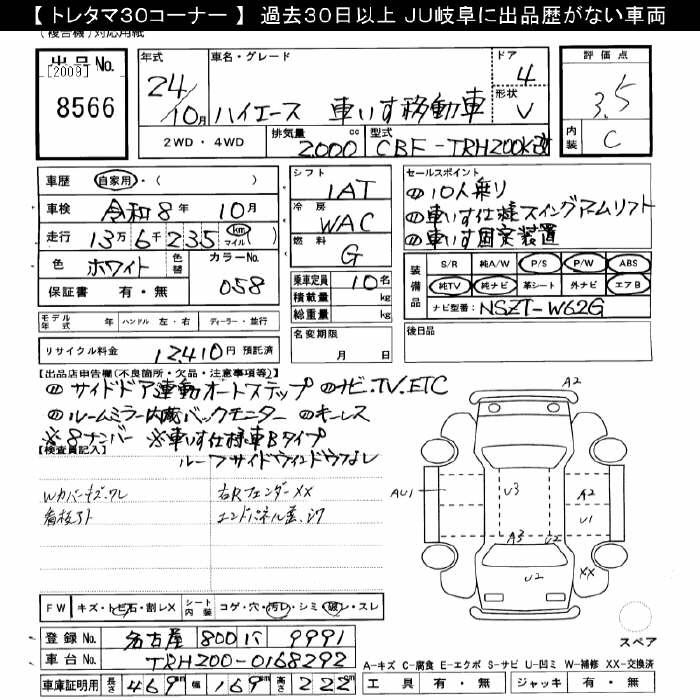 【 トレタマ30コーナー 】 過去30日以上 JU岐阜に出品歴がない車両
(複合機) 対応用紙
出品No.
【2009】
8566
年式
24/10月
車名・グレード
ハイエース 車いす移動車
ドア
4
形状
V
評価点
3.5
内装
C
2WD・4WD
排気量
2000 cc
型式
CBF-TRH200K改
車歴 自家用・( )
車検 令和8年 10月
走行 13万6千235 km マイル
色 ホワイト 色替 カラーNo. 058
保証書 有・無
シフト
1AT
冷房
WAC
燃料
G
乗車定員 10名
積載量 kg
総重量 kg
セールスポイント
10人乗り
車いす仕様スイングアームリフト
車いす固定装置
装備品
S/R 純A/W P/S P/W ABS
純TV 純ナビ 革シート 外ナビ エアB
ナビ型番: NSZT-W62G
モデル年式 年 ハンドル 左・右 ディーラー・並行
リサイクル料金 12,410円 預託済
名変期限 月 日
後日品
【出品店申告欄(不良箇所・欠品・注意事項等)】
サイドドア連動オートステップ ナビ.TV.ETC
ルームミラー内蔵バックモニター キーレス
※8ナンバー ※車いす仕様車Bタイプ
ルーフサイドウィンドウなし
【検査員記入】
Wカバーキズ.ワレ 右Rフェンダー XX
看板アト
A2
AU1
U3
A2
U1
A3
U2
U2
XX
FW キズ・トビ石・割レX シート内装 コゲ・穴・汚レ・シミ・破レ・スレ
スペア
登録No. 名古屋 800 9991
車台No. TRH200-0168292
車庫証明用 長さ 469 幅 169 高さ 222 cm
A-キズ C-腐食 E-エクボ S-サビ U-凹ミ W-補修 XX-交換済
工具 有・無 ジャッキ 有・無